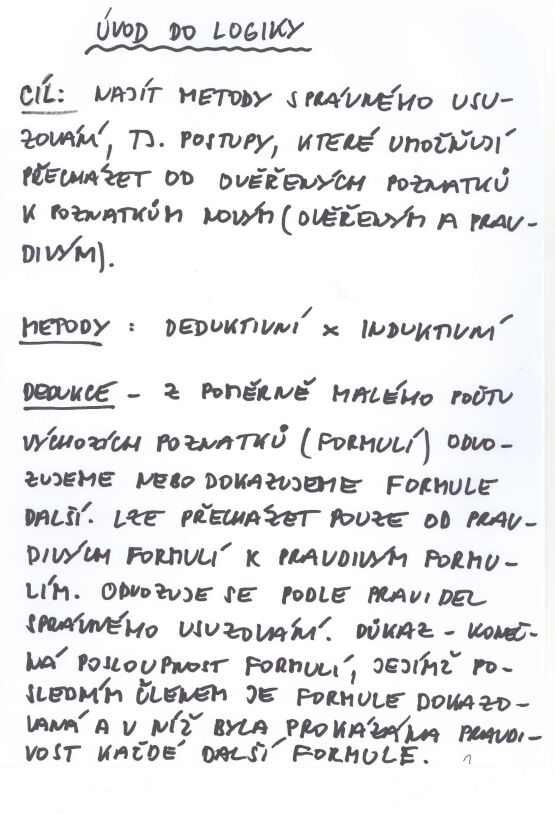 ÚVOD DO LOGIKY
CÍL: NAJÍT METODY SPRÁVNÉHO USU-
ZOVÁNÍ, TJ. POSTUPY, KTERÉ UMOŽŇUJÍ
PŘECHÁZET OD OVĚŘENÝCH POZNATKŮ
K POZNATKŮM NOVÝM (OVĚŘENÝM A PRAV-
DIVÝM).
METODY : DEDUKTIVNÍ × INDUKTIVNÍ
DEDUKCE - Z POMĚRNĚ MALÉHO POČTU
VÝCHOZÍCH POZNATKŮ (FORMULÍ) ODVO-
ZUJEME NEBO DOKAZUJEME FORMULE
DALŠÍ. LZE PŘECHÁZET POUZE OD PRAV-
DIVÝCH FORMULÍ K PRAVDIVÝM FORMU-
LÍM. ODVOZUJE SE PODLE PRAVIDEL
SPRÁVNÉHO USUZOVÁNÍ. DŮKAZ - KONEČ-
NÁ POSLOUPNOST FORMULÍ, JEJÍMŽ PO-
SLEDNÍM ČLENEM JE FORMULE DOKAZO-
VANÁ A V NÍŽ BYLA PROKÁZÁNA PRAVDI-
VOST KAŽDÉ DALŠÍ FORMULE.